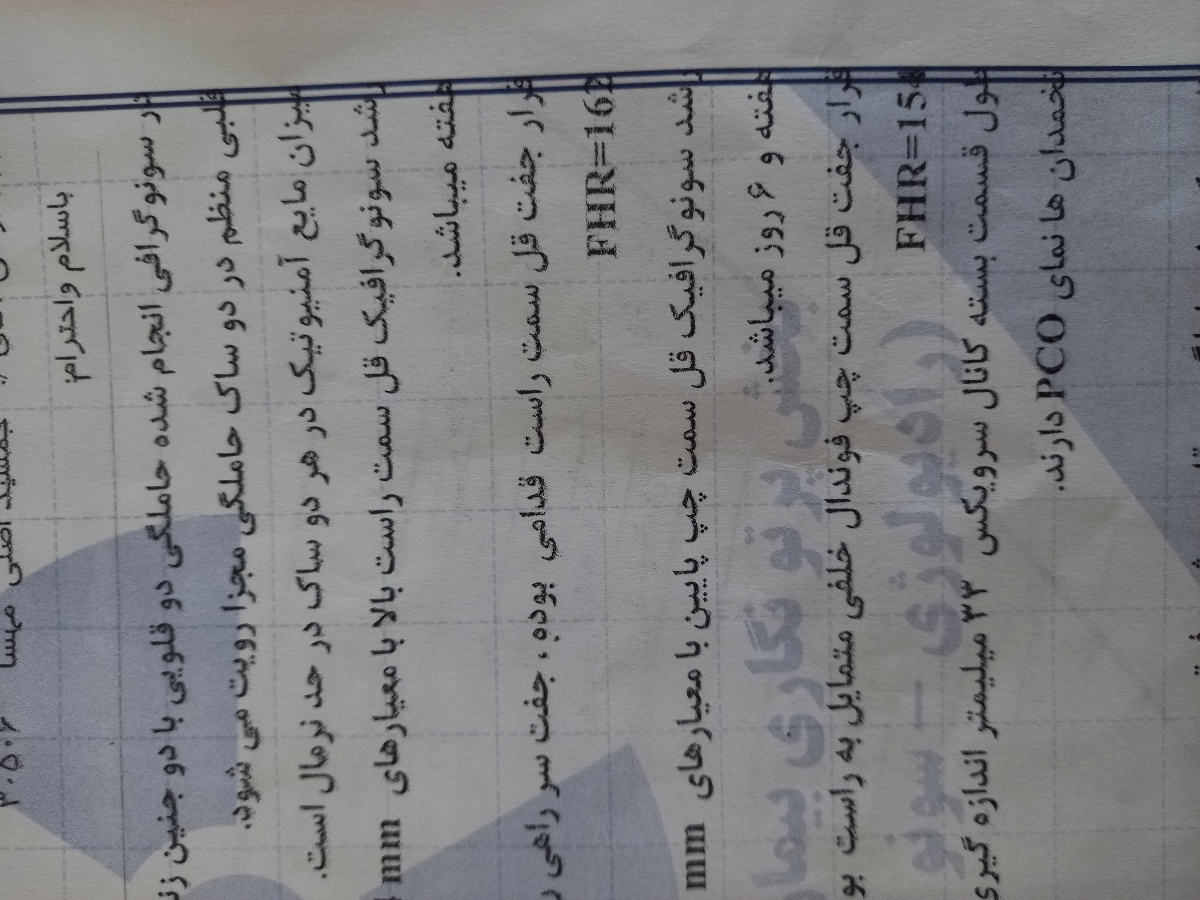 جمشید اصلی مهسا
باسلام واحترام:
در سونوگرافی انجام شده حاملگی دو قلویی با دو جنین
قلبی منظم در دو ساک حاملگی مجزا رویت می شود.
میزان مایع آمنیوتیک در هر دو ساک در حد نرمال است.
رشد سونوگرافیک قل سمت راست بالا با معیارهای mm
هفته میباشد.
قرار جفت قل سمت راست قدامی بوده ، جفت سر راهی
FHR=162
رشد سونوگرافیک قل سمت چپ پایین با معیارهای mm
هفته و ۶ روز میباشد.
قرار جفت قل سمت چپ فوندال خلفی متمایل به راست
FHR=154
طول قسمت بسته کانال سرویکس ۳۳ میلیمتر اندازه گیری
تخمدان ها نمای PCO دارند.
بخش پرتو نگاری
(رادیولوژی - سونو